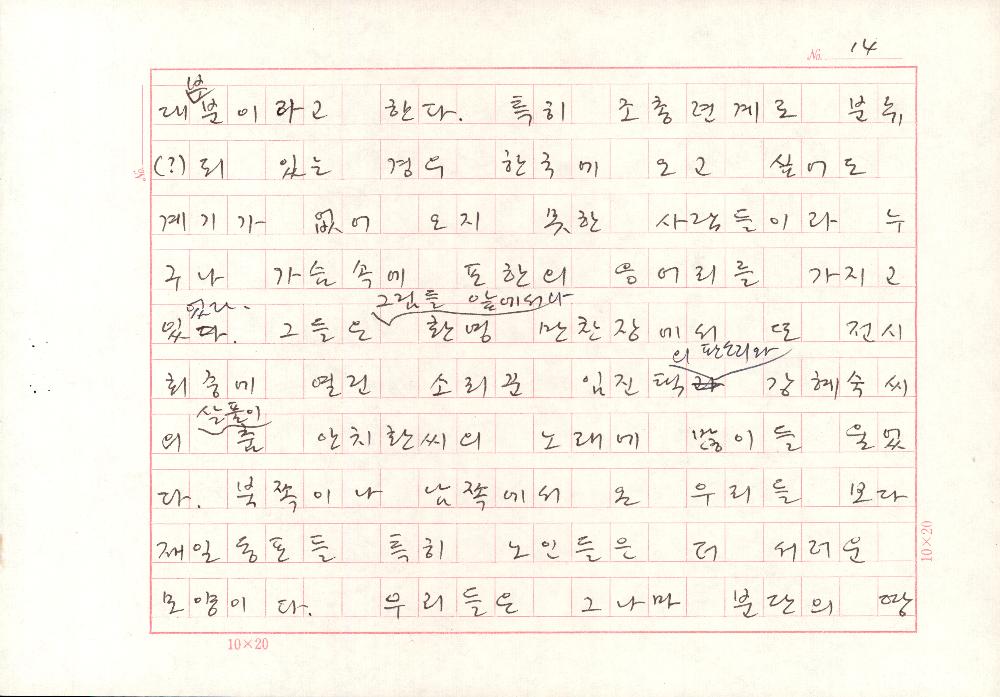 No. 14
부
대분이라고 한다. 특히 조총련계로 분류
(?)되 있는 경우 한국에 오고 싶어도
No.
계기가 없어 오지 못한 사람들이라 누
구나 가슴속에 포한의 응어리를 가지고
있다. 그림들 앞에서나
있다. 그들은 환영 만찬장에서 또 전시
의 판소리와
회중에 열린 소리꾼 임진택과 강혜숙씨
살풀이
의 춤 안치환씨의 노래에 많이들 울었
다. 북쪽이나 남쪽에서 온 우리들 보다
재일동포들 특히 노인들은 더 서러운
모양이다. 우리들은 그나마 분단의 땅
10×20
10×20